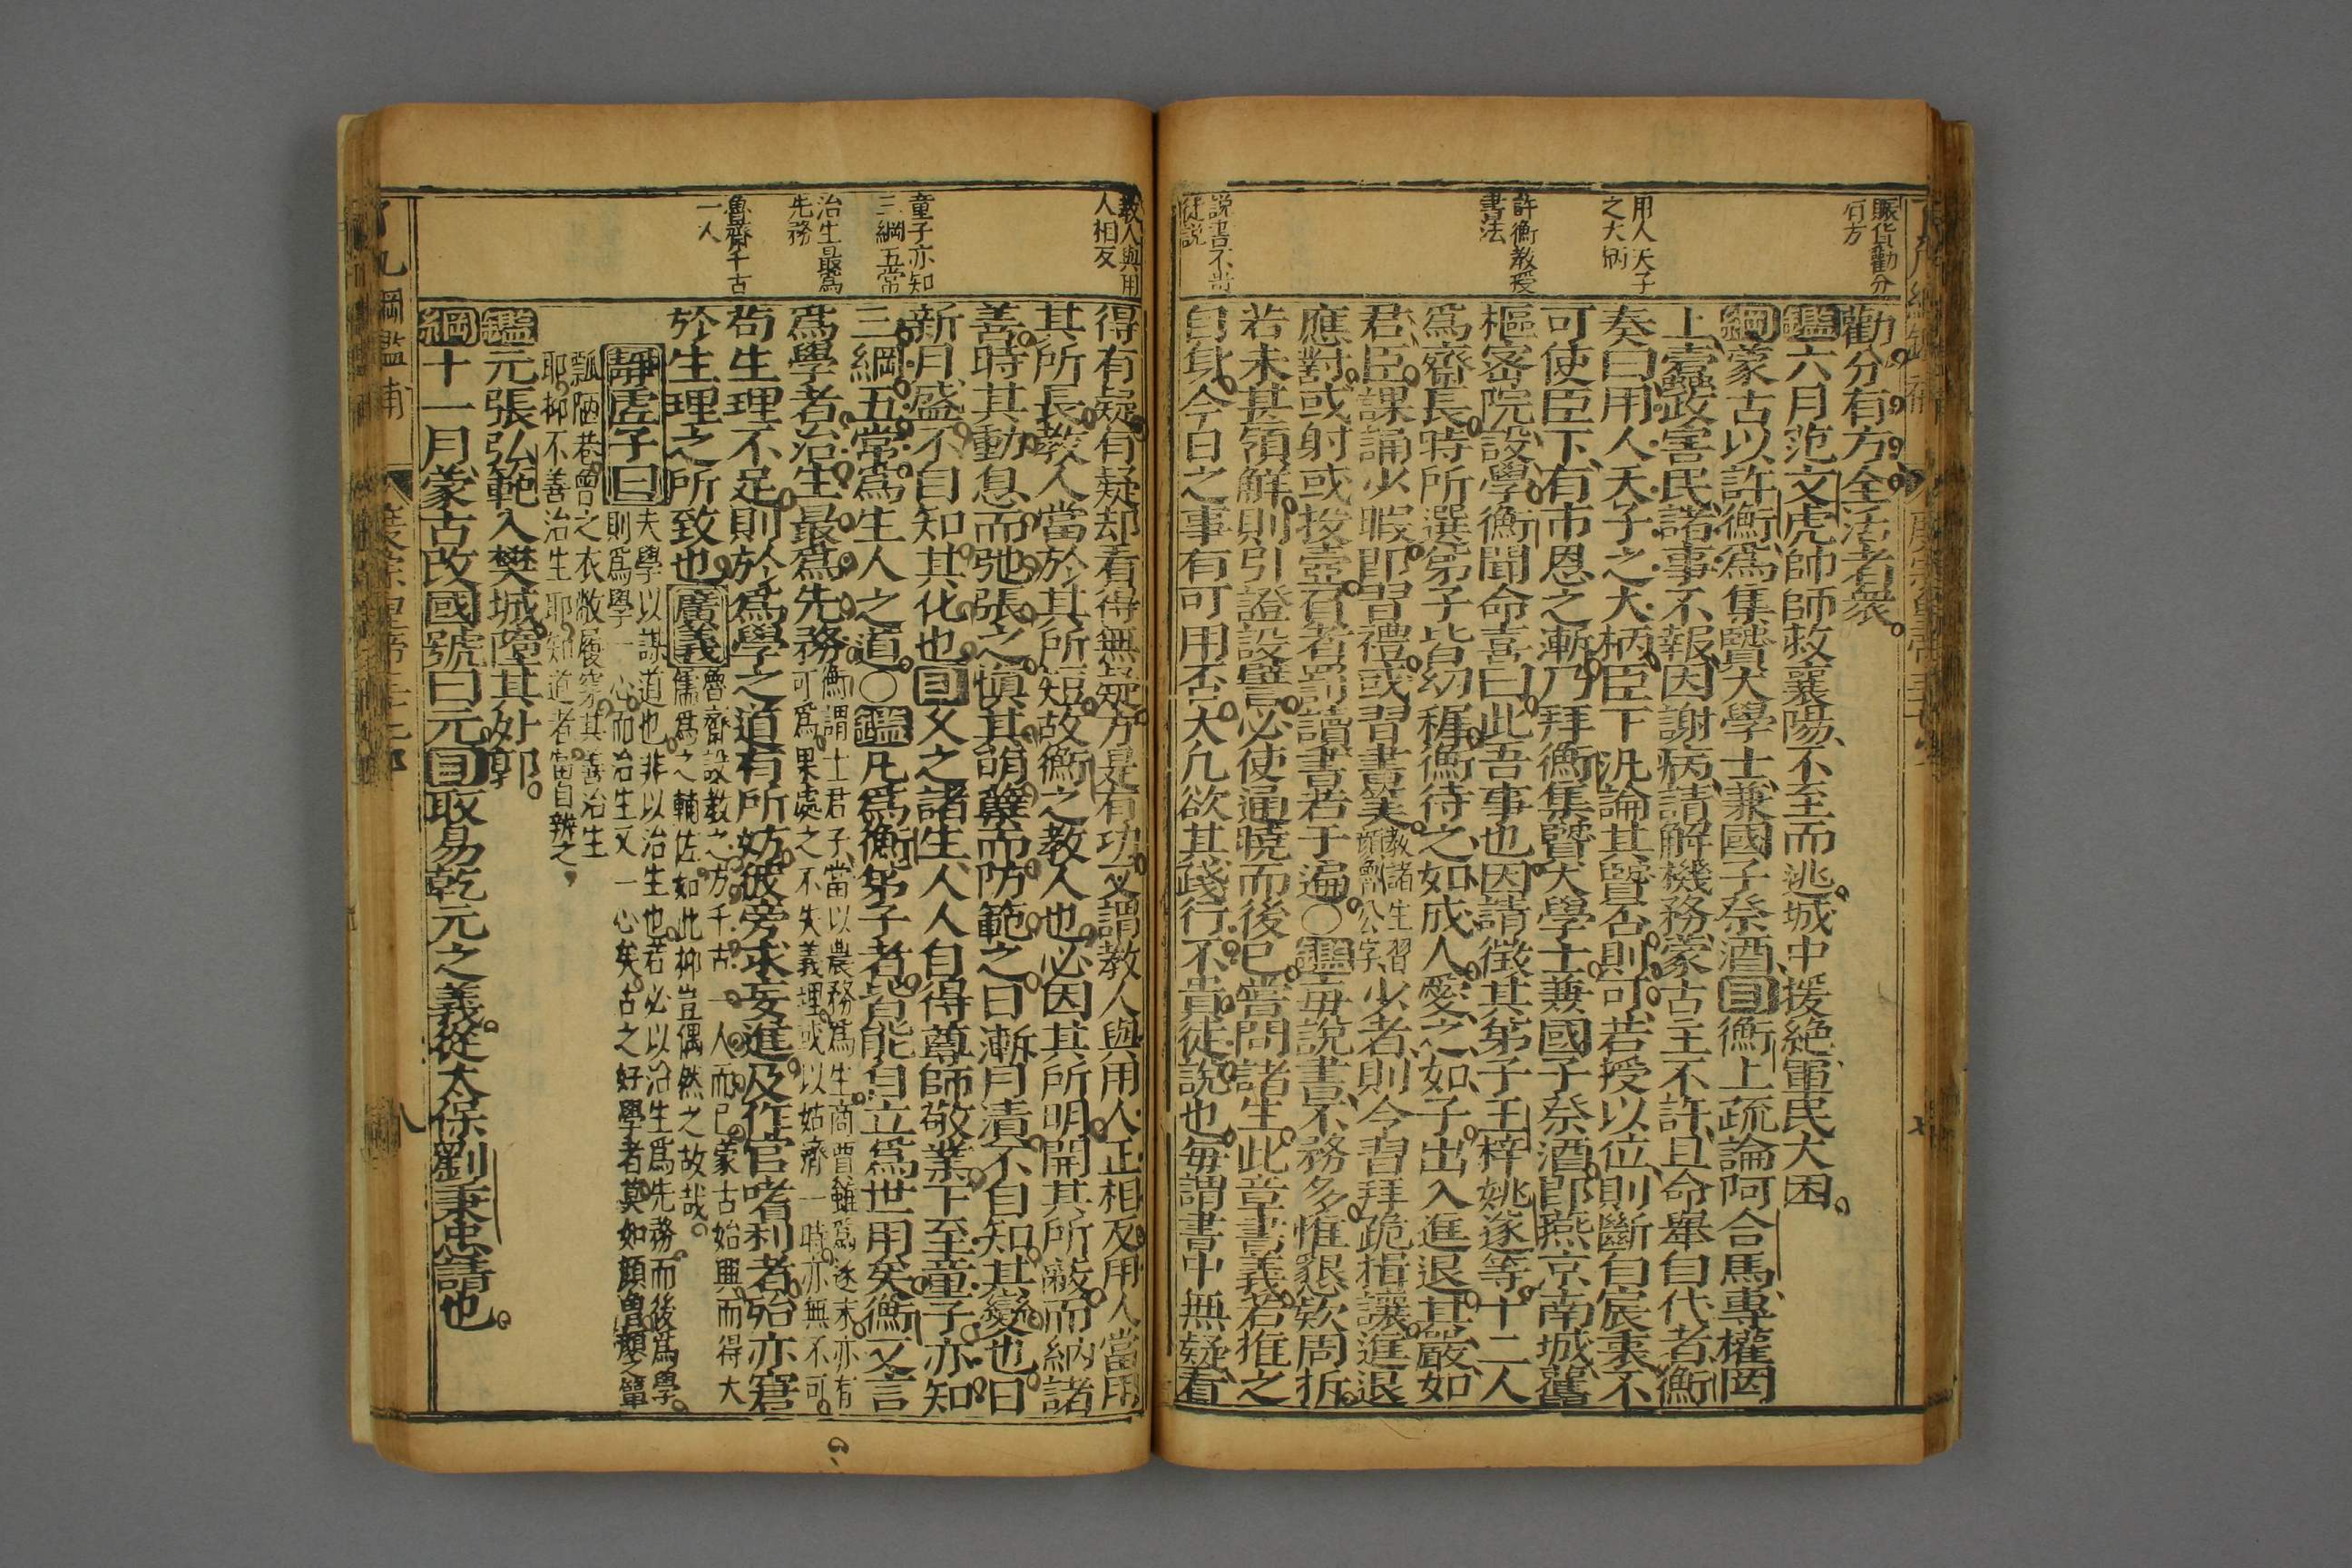 賑貸勸分
有方
用人天子
之大柄
許衡教授
書法
說書不貴
徒說
勸分有方全活者衆
鑑六月范文虎帥師救襄陽不至而逃城中援絶軍民大困
綱蒙古以許衡爲集賢大學士兼國子祭酒目衡上疏論阿合馬專權罔
上蠧政害民諸事不報因謝病請解機務蒙古主不許且命舉自代者衡
奏曰用人天子之大柄臣下汎論其賢否則可若授以位則斷自宸衷不
可使臣下有市恩之漸乃拜衡集賢大學士兼國子祭酒卽燕京南城舊
樞密院設學衡聞命喜曰此吾事也因請徵其弟子王梓姚遂等十二人
爲齋長時所選弟子皆幼穉衡待之如成人愛之如子出入進退其嚴如
君臣課誦少暇卽習禮或習書筭教諸生習顏魯公字少者則令習拜跪揖讓進退
應對或射或投壺負者罰讀書若干遍〇鑑每說書不務多惟懇欵周折
若未甚領解則引證設譬必使通曉而後已嘗問諸生此章書義若推之
自身今日之事有可用否大凡欲其踐行不貴徒說也每謂書中無疑看
教人與用
人相反
童子亦知
三綱五常
治生最爲
先務
魯齋千古
一人
得有疑有疑却看得無疑方是有功又謂教人與用人正相反用人當用
其所長教人當於其所短故衡之教人也必因其所明開其所蔽而納諸
善時其動息而弛張之愼其萌蘖而防範之日漸月漬不自知其變也日
新月盛不自知其化也目父之諸生人人自得尊師敬業下至童子亦知
三綱五常爲生人之道〇鑑凡爲衡弟子者皆能自立爲世用矣衡又言
爲學者治生最爲先務衡謂士君子當以農務爲生商賈雖爲逐末亦有可爲果處之不失義理或以姑濟一時亦無不可
苟生理不足則於爲學之道有所妨彼旁求妄進及作官嗜利者殆亦窘
於生理之所致也廣義魯齋設教之方千古一人而已蒙古始興而得大儒爲之輔佐如此抑豈偶然之故哉
靜虛子曰夫學以謀道也非以治生也若必以治生爲先務而後爲學則爲學一心而治生又一心矣古之好學者莫如顏曾顏之簞
瓢陋巷曾之衣敝履穿其善治生耶抑不善治生耶知道者當自辨之
鑑元張弘範入樊城隳其外郭
綱十一月蒙古改國號曰元目取易乾元之義從太保劉秉忠請也
八